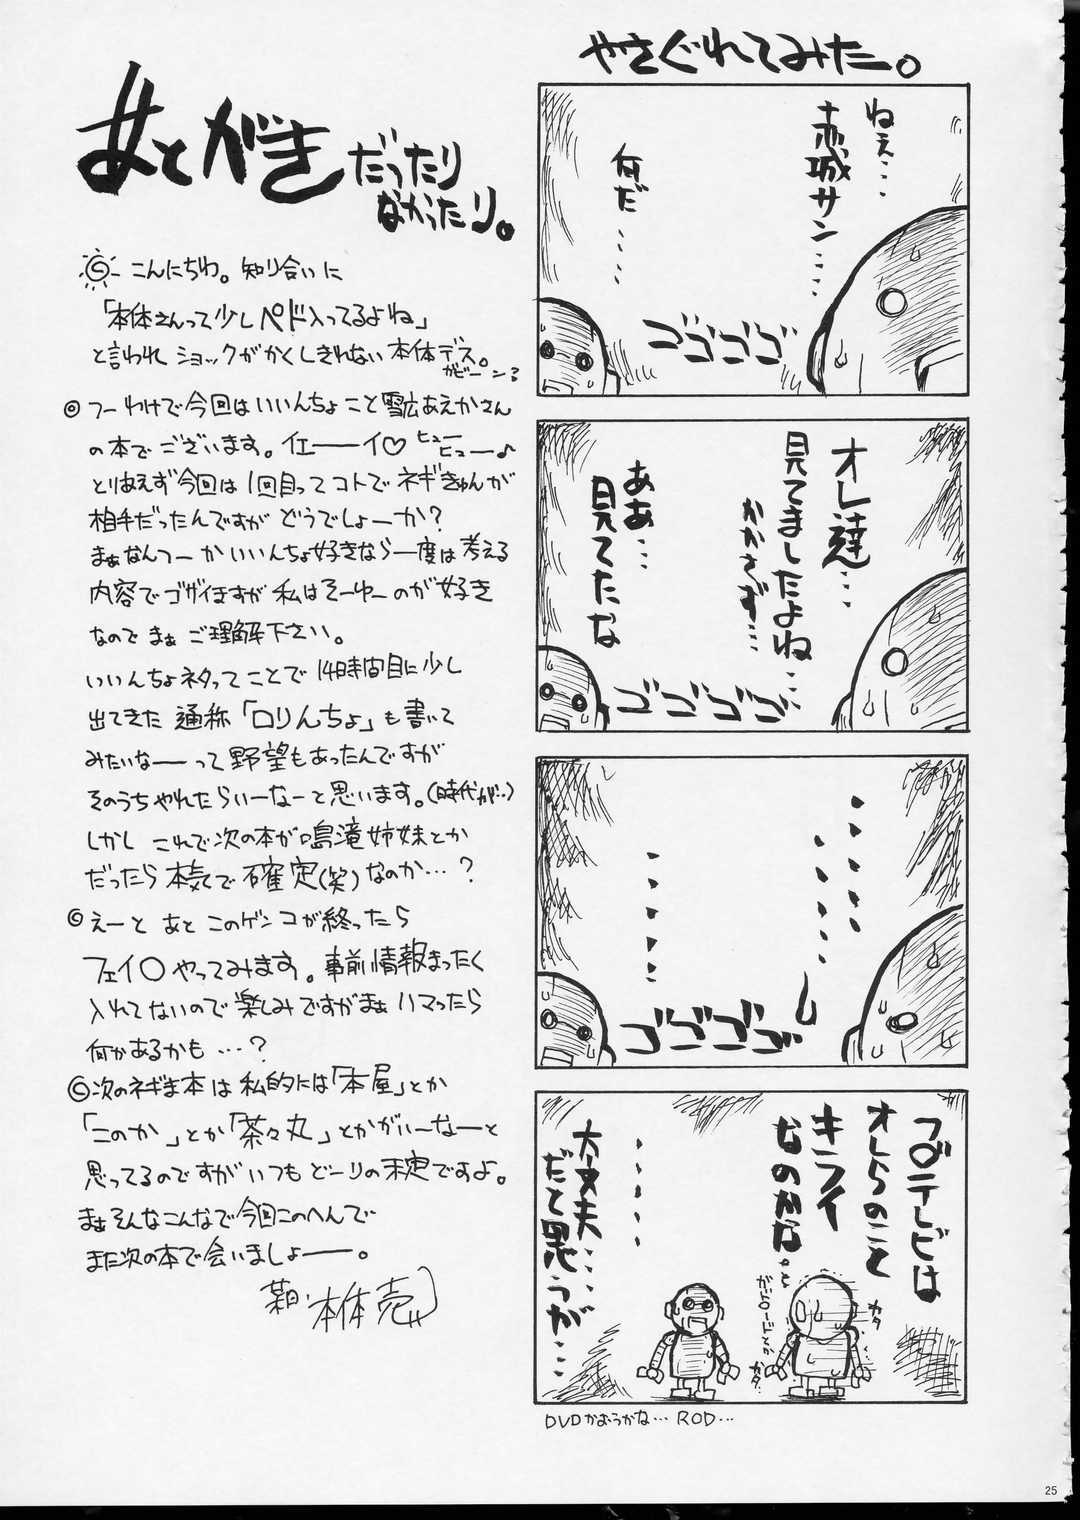 あとがき だったり
なかったり。
こんにちわ。知り合いに
「本体さんって少しペド入ってるよね」
と言われ ショックがかくしきれない 本体デス。
ガビーン
つーわけで今回はいいんちょこと雪広あえかさん
の本でございます。イエーーイ♡ ヒュー
ヒュー♪
とりあえず今回は1回目ってコトでネギきゅんが
相手だったんですが どうでしょーか?
まぁなんつーか いいんちょ好きなら一度は考える
内容でゴザイますが 私はそーゆーのが好き
なので まぁ ご理解下さい。
いいんちょネタってことで 14時間目に少し
出てきた 通称「ロりんちょ」も書いて
みたいなーーって野望もあったんですが
そのうちやれたらいーなーと思います。(時代が…)
しかし これで次の本が鳴滝姉妹とか
だったら 本気で確定(笑)なのか…?
えーと あと このゲンコが終ったら
フェイ〇 やってみます。事前情報まったく
入れてないので楽しみですがまぁハマったら
何かあるかも …?
次のネギま本は 私的には「本屋」とか
「このか」とか「茶々丸」とかがいーなーと
思ってるのですが いつもどーりの未定ですよ。
まぁそんなこんなで今回このへんで
また次の本で会いましょーー。
本体 売
やさぐれてみたー。
ねぇ…
赤城サン……
何だ……
ゴゴゴゴ
オレ達…
見てましたよね
かかさず…
ああ…
見てたな
ゴゴゴゴ
……
……
ゴゴゴゴ
フ〇テレビは
オレらのこと
キライ
なのかな…
カタ
カタ
……
大丈夫…
だと思うが…
DVDかおうかな… ROD…
25